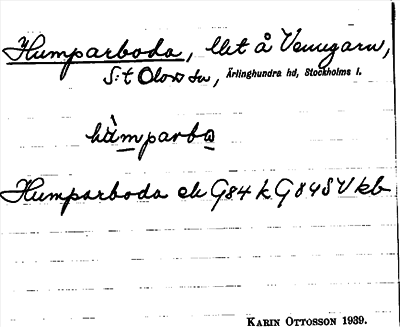 Humparboda, llet å Venngarn,
S:t Olovs sn, Ärlinghundra hd, Stockholms l.
hàmparbɷ
Humparboda ek G84 k G84SV kb
KARIN OTTOSSON 1939.